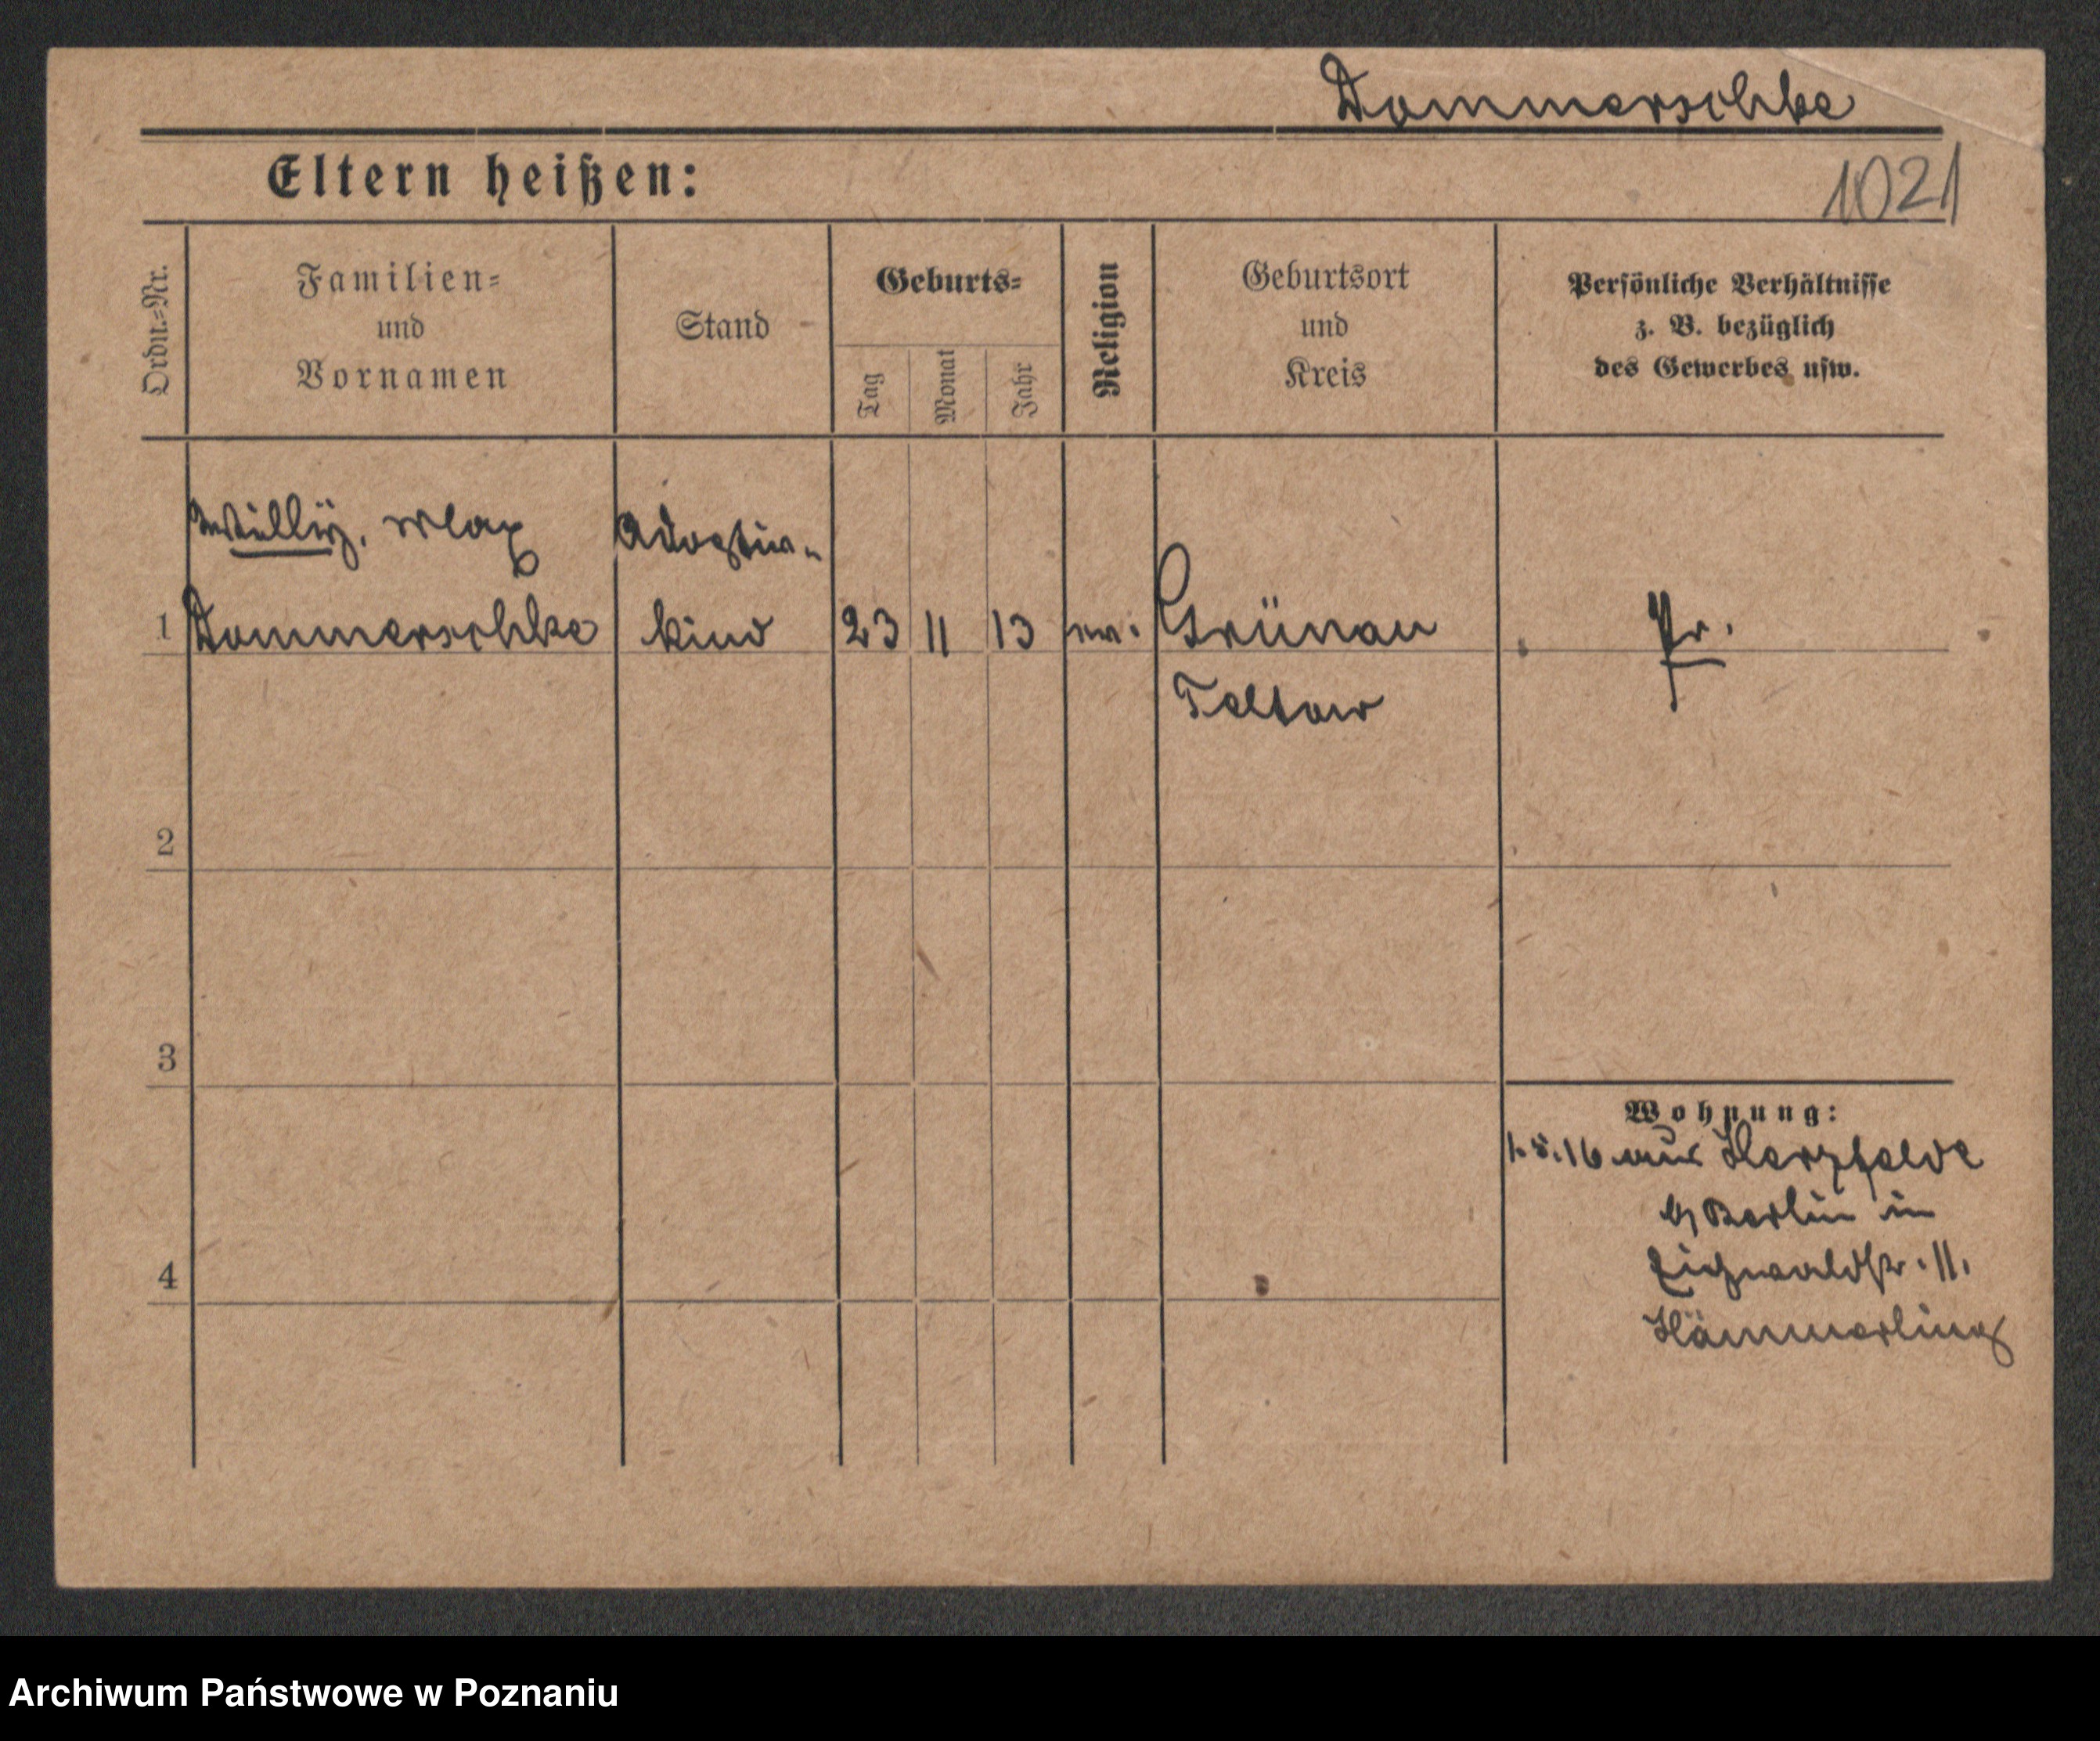 Dommerschke
Eltern heißen:
1021
Ordn.-Nr.
Familien-
und
Vornamen
Stand
Geburts-
Tag
Monat
Jahr
Religion
Geburtsort
und
Kreis
Persönliche Verhältnisse
z. B. bezüglich
des Gewerbes usw.
Willy, Max
Adoptiv-
1 Dommerschke kind 23 11 13 ev. Grünau Pr.
Teltow
2
3
Wohnung:
1.5.16 aus Herzfelde
b/Berlin in
4
Eichwaldstr. 11.
Hämmerling
Archiwum Państwowe w Poznaniu